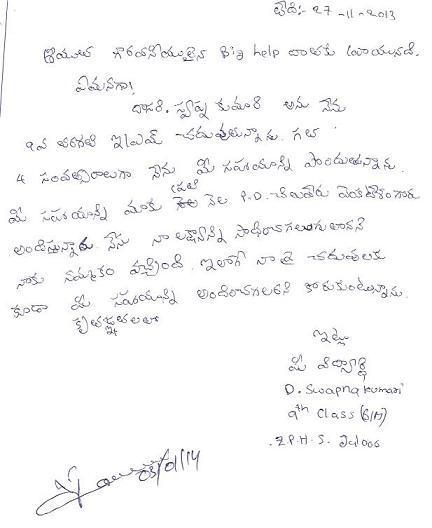 తేది:- 27-11-2013
శ్రీయుత గౌరవనీయులైన Big help వారికి వ్రాయునది.
ఏమనగా!
దాసరి. స్వప్న కుమారి అను నేను
9వ తరగతి ఇ/ఎమ్ చదువుతున్నాను. గత
4 సంవత్సరాలుగా నేను మీ సహాయాన్ని పొందుతున్నాను.
మీ సహాయాన్ని మాకు ప్రతి నెల P.D. వెంకటేశంగారు
అందిస్తున్నారు. నేను నా లక్ష్యాన్ని సాధించగలుగుతానని
నాకు నమ్మకం వచ్చింది. ఇలాగే నా పై చదువులకు
కూడా మీ సహాయాన్ని అందించగలరని కోరుకుంటున్నాను.
కృతజ్ఞతలతో
ఇట్లు
మీ విద్యార్థి
D. Swapna kumari
9th Class (E/M)
Z.P.H.S.